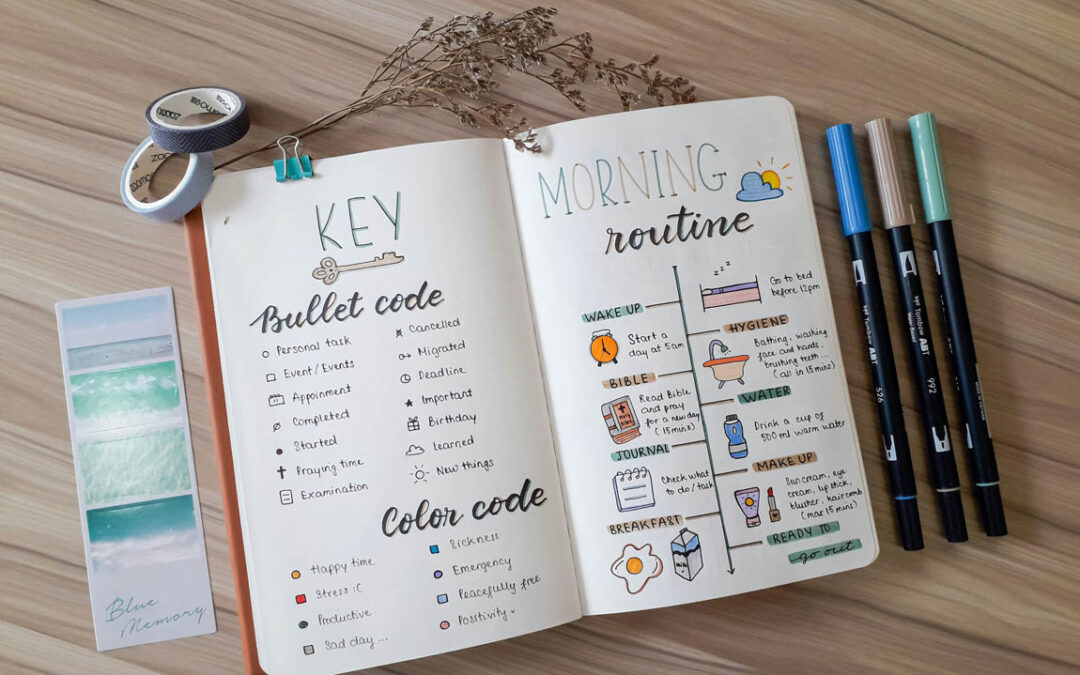 zoomoe
KEY
Bullet code
Personal task
Event / Events
Appoinment
Completed
Started
Praying time
Examination
Cancelled
Migrated
Deadline
Important
Birthday
learned
New things
Color code
Happy time
Stress :(
Productive
Sad day ...
Sickness
Emergency
Peacefully free
Positivity
MORNING
routine
zzz
Go to bed
before 12pm
WAKE UP
Start a
day at 5am
HYGIENE
Bathing, washing
face and hands,
brushing teeth ...
(all in 15 mins)
BIBLE
Holy
Read Bible
and pray
for a new day
(15mins)
WATER
Drink a cup of
500 ml warm water
JOURNAL
Check what
to do / task
MAKE UP
Suncream, eye
cream, lip stick,
blusher, hair comb
(max 15 mins)
BREAKFAST
MILK
READY TO
go out
Blue
Memory
Tombow ABT
526
Tombow ABT
992